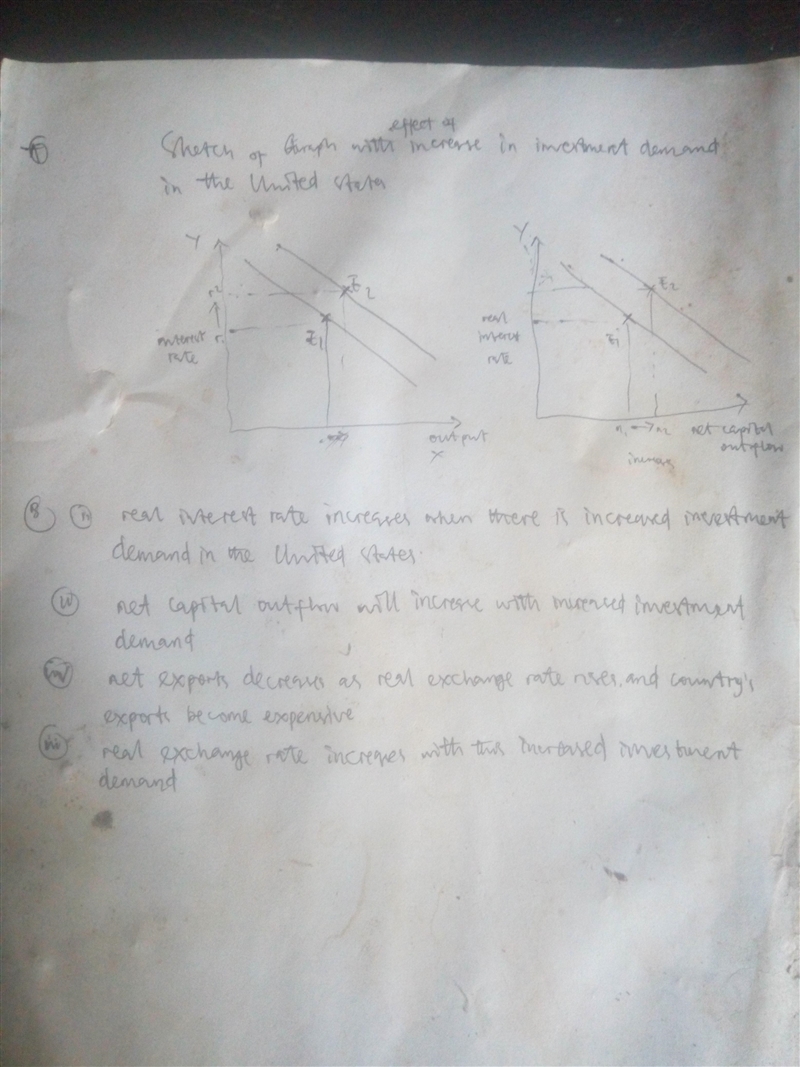 effect of
Sketch of Graph with increase in investment demand
in the United States
Y
r2
E2
interest r1
rate
E1
output
X
Y
E2
real
interest
rate
E1
n1 → n2 net capital
outflow
increase
8 i real interest rate increases when there is increased investment
demand in the United States.
ii net capital outflow will increase with increased investment
demand
iv net exports decreases as real exchange rate rises, and country's
exports become expensive
iii real exchange rate increases with this increased investment
demand